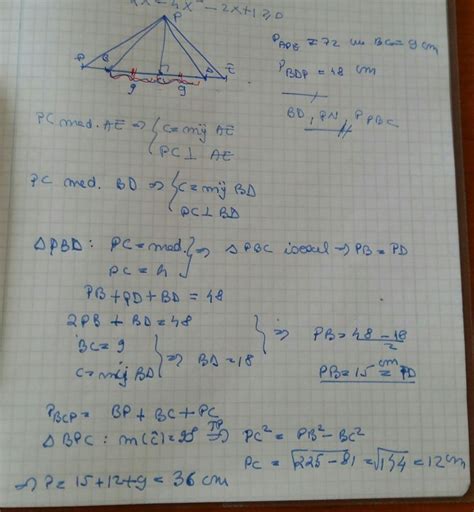 -2x+1≥0
P
A B C D E
9 9
P_APB = 72 cm BC = 9 cm
P_BDP = 48 cm
BD, PD, P_PBC
PC med. AE ⇒ { C = mij AE
PC ⊥ AE
PC med. BD ⇒ { C = mij BD
PC ⊥ BD
△PBD: PC = med. } ⇒ △PBC isoscel ⇒ PB = PD
PC = h
PB + PD + BD = 48
2PB + BD = 48
BC = 9
C = mij BD } ⇒ BD = 18
⇒ PB = 48 - 18 / 2
PB = 15 cm = PD
P_BCP = BP + BC + PC
△BPC: m(Ĉ) = 90° TP ⇒ PC² = PB² - BC²
PC = √225 - 81 = √144 = 12 cm
⇒ P = 15 + 12 + 9 = 36 cm